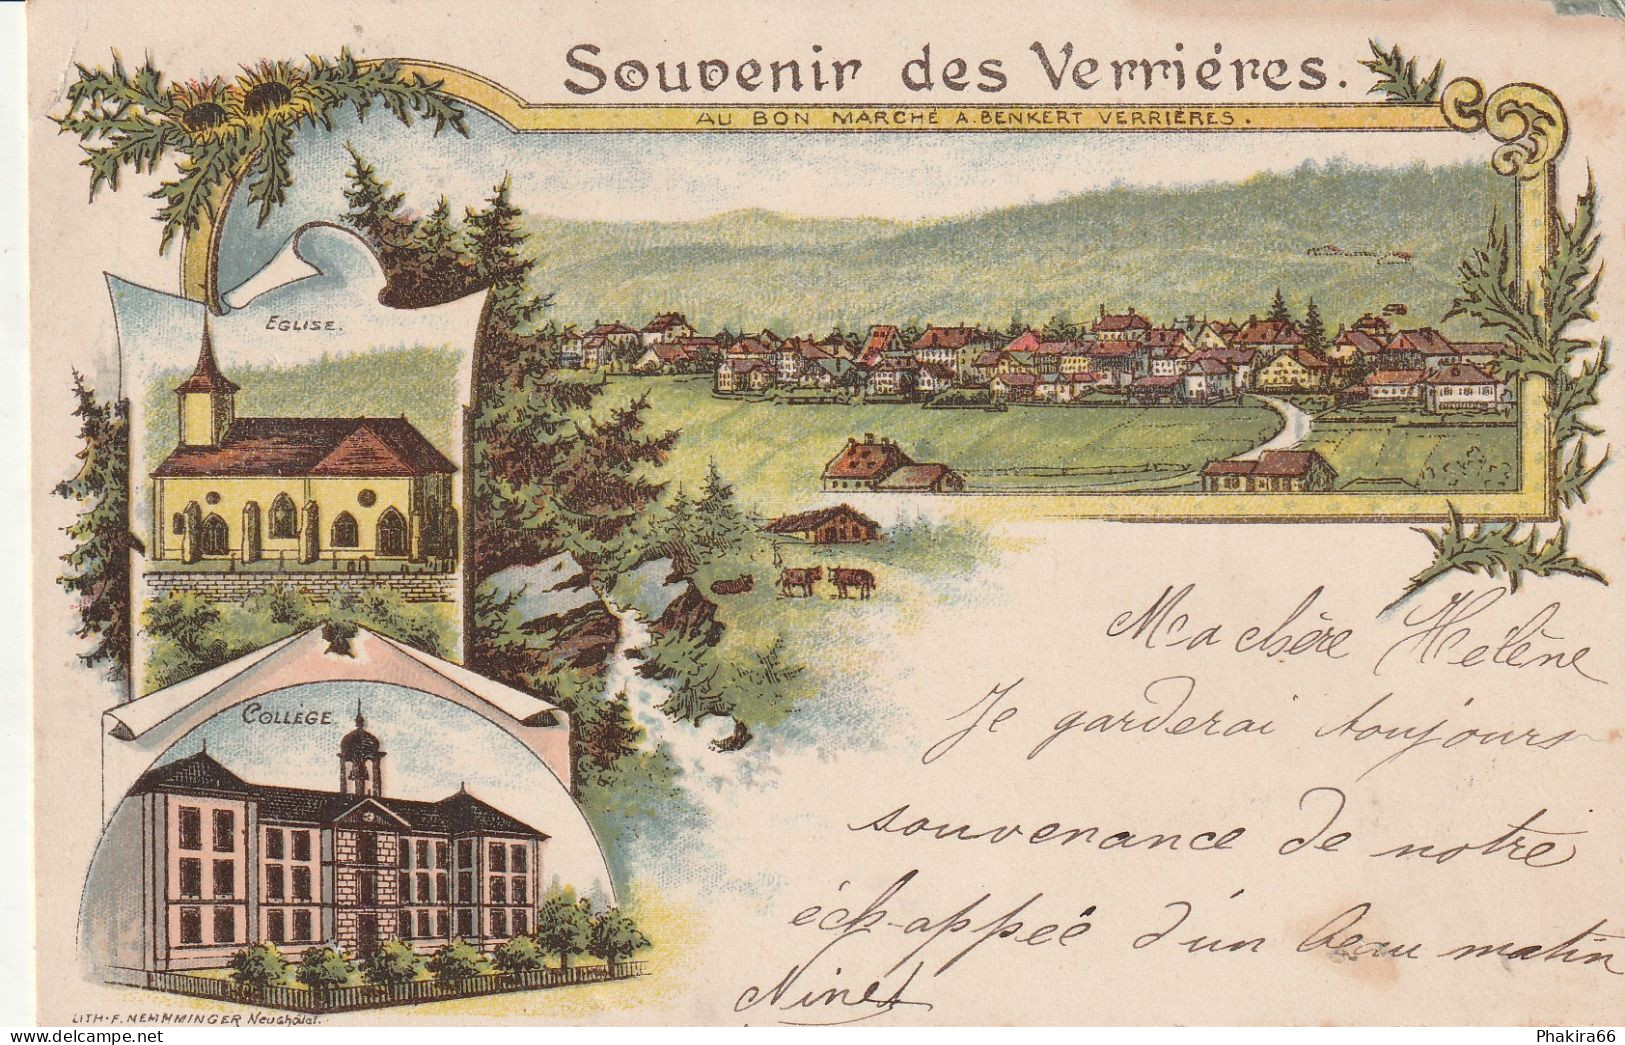 Souvenir des Verriéres.
AU BON MARCHÉ A. BENKERT VERRIÈRES.
EGLISE.
COLLÈGE.
Ma chère Hélène
Je garderai toujours
souvenance de notre
échappée d'un beau matin
Ninet
LITH. F. NEMMMINGER Neuchâtel.
Phakira66